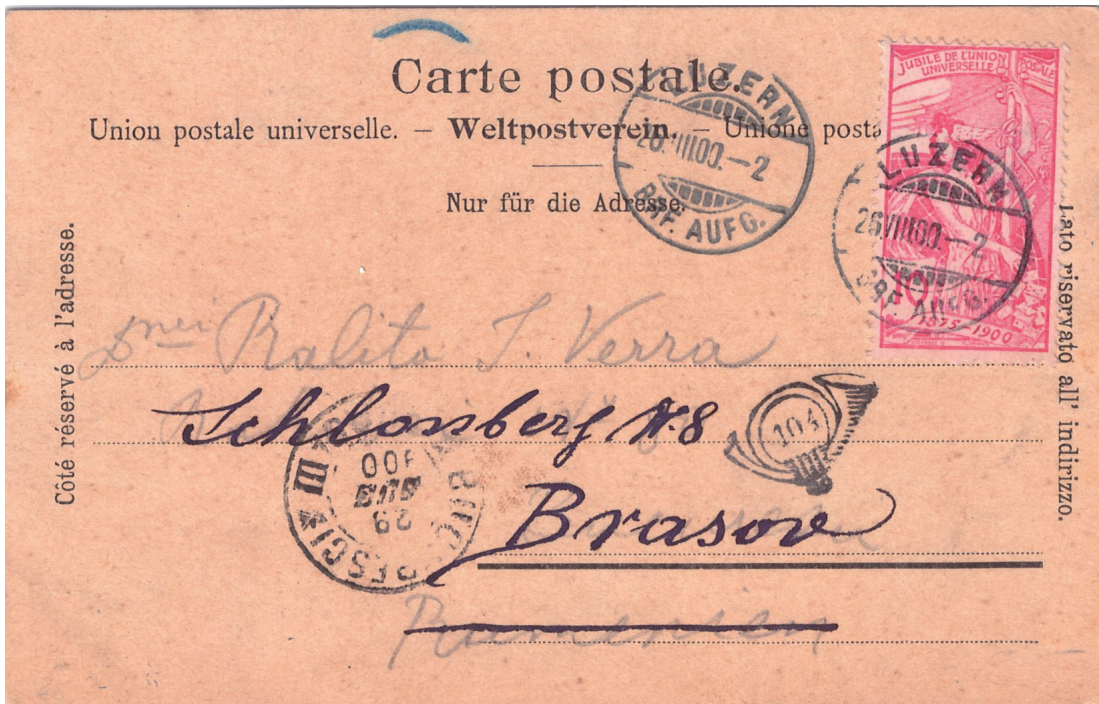 Carte postale.
Union postale universelle. – Weltpostverein. – Unione posta
Nur für die Adresse.
Côté réservé à l'adresse.
Lato riservato all' indirizzo.
JUBILÉ DE L'UNION POSTALE
UNIVERSELLE
10
1875–1900
LUZERN
26.VIII.00.–2
BRF. AUFG.
LUZERN
26.VIII.00.–2
BRF. AUFG.
Ralito J. Verra
Schlossberg N. 8
104
BUCURESCI III
29
AUG
900
Brasov
Rumenien